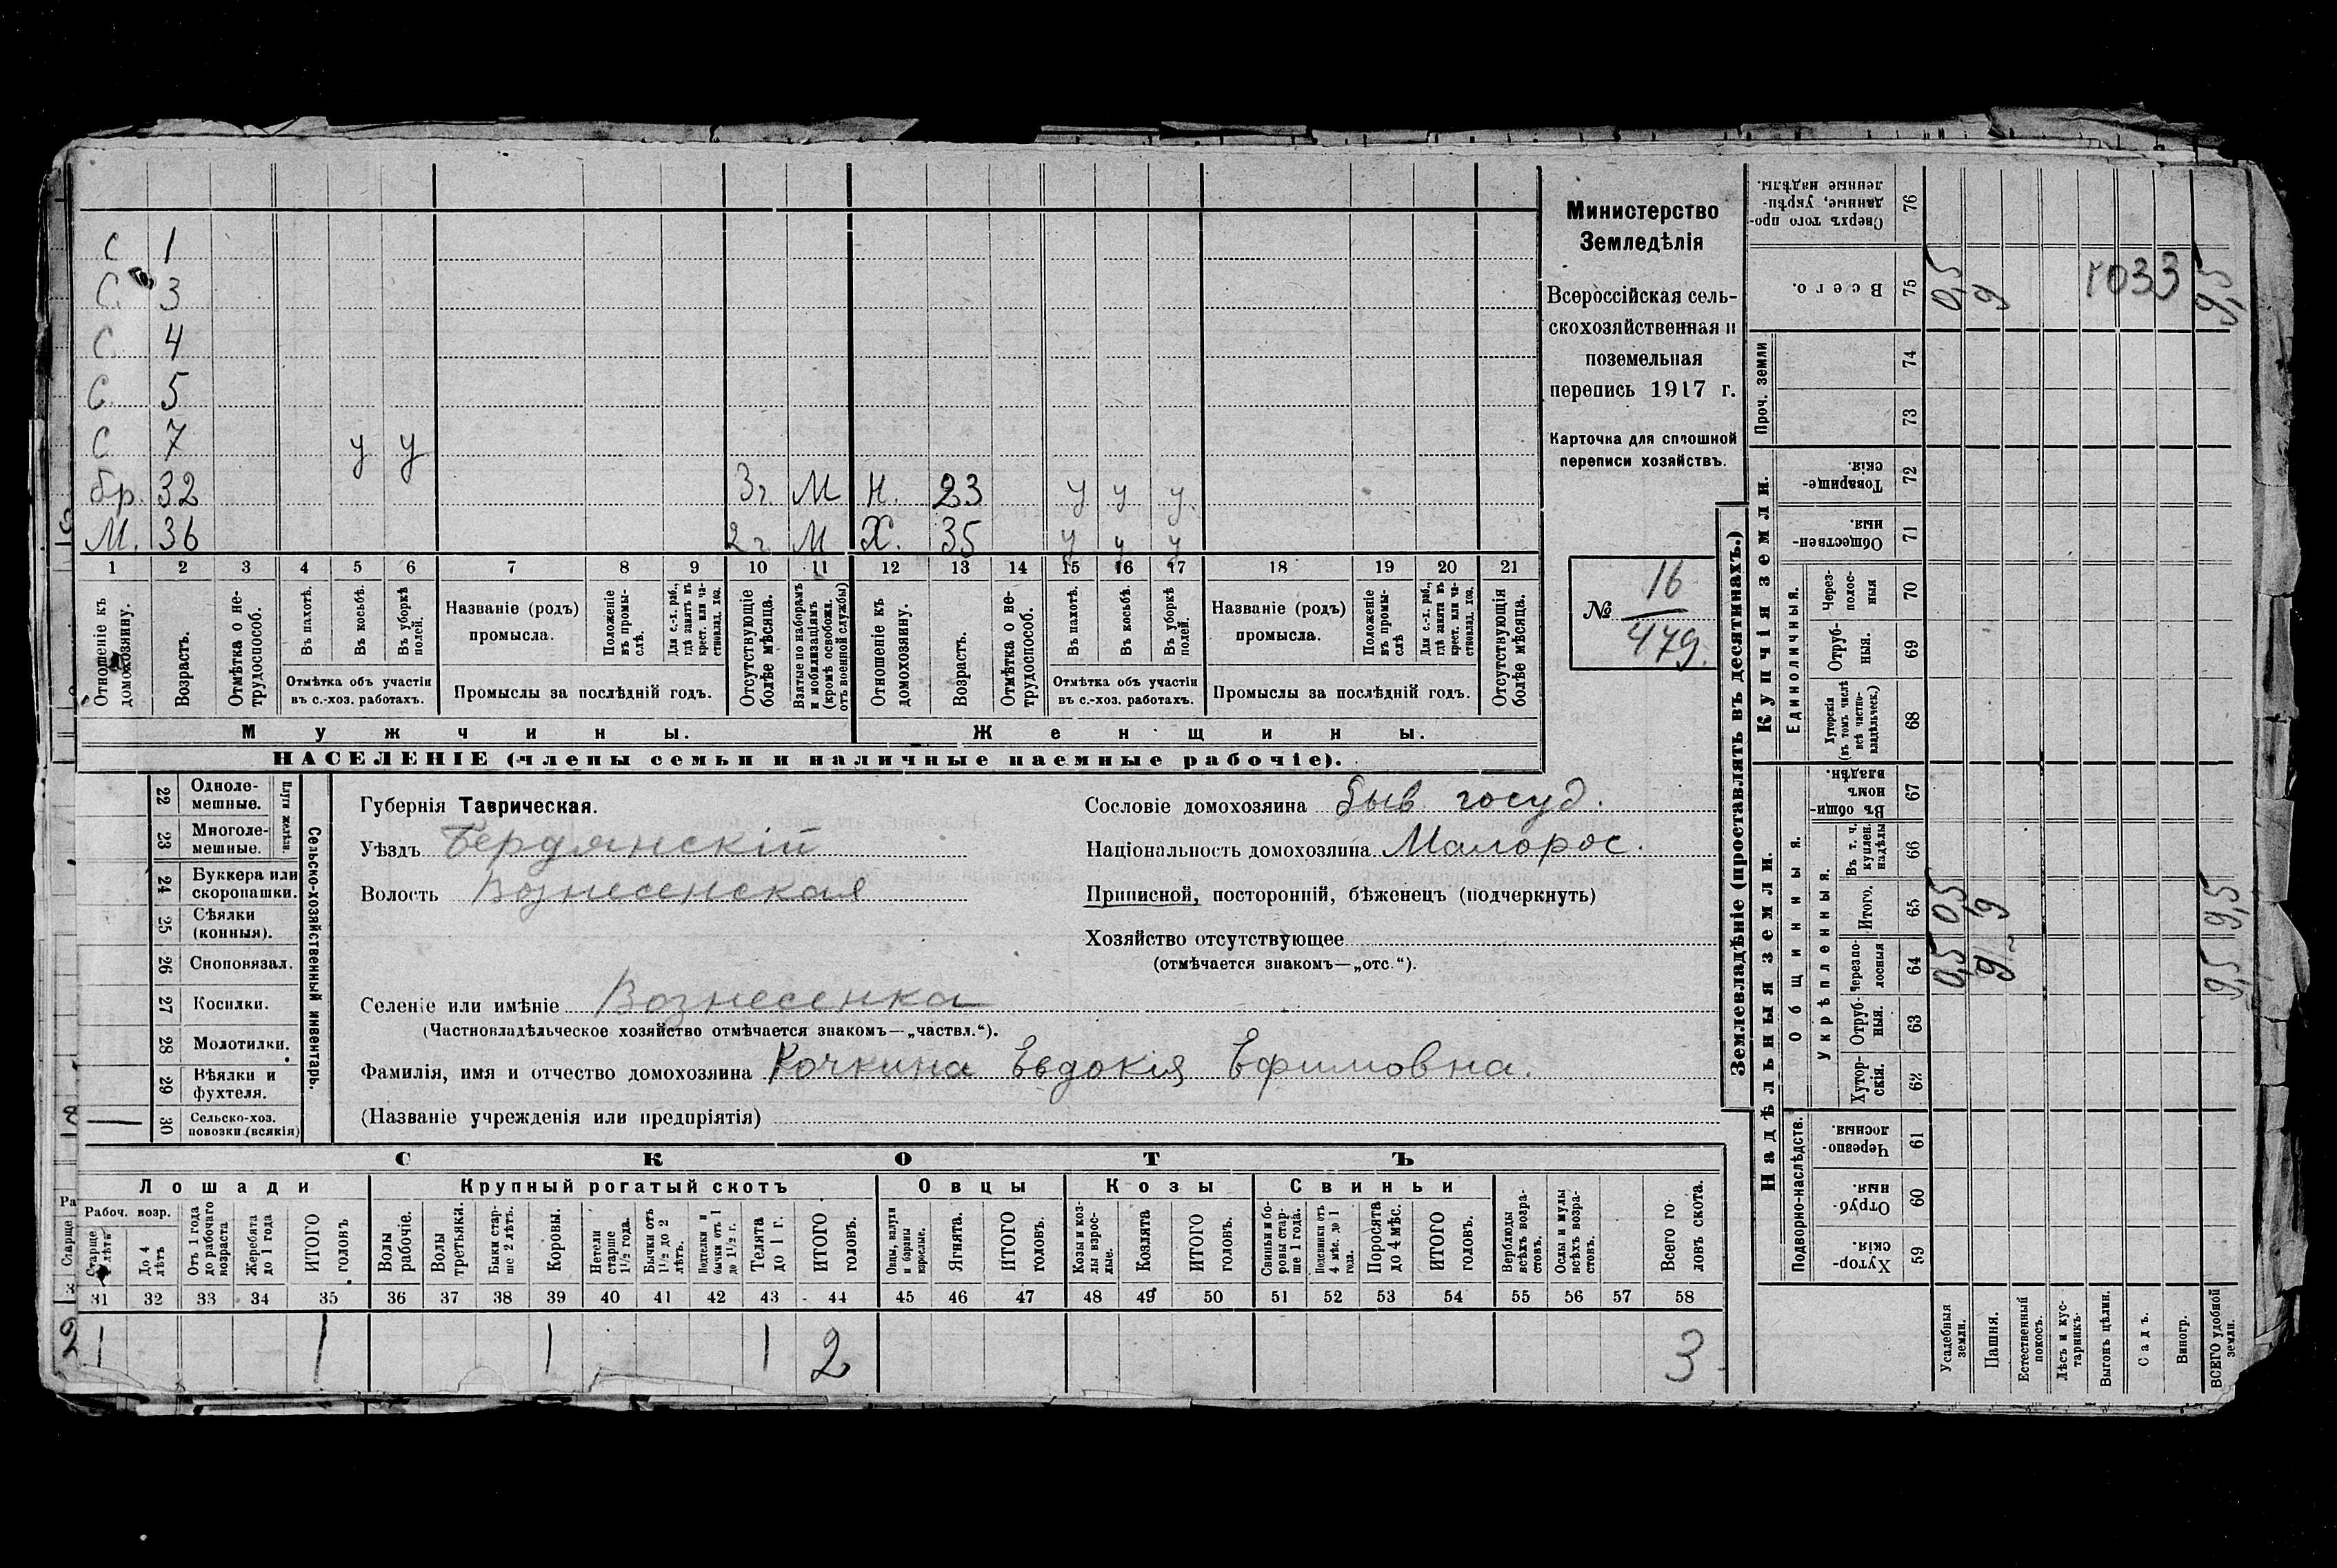 С 1
С. 3
С 4
С. 5
С 7 у у
бр. 32 3 г. М Н. 23 у у у.
М. 36 2 г. М Х. 35 у у у
1 2 3 4 5 6 7 8 9 10 11 12 13 14 15 16 17 18 19 20 21
Отношеніе къ домохозяину.
Возрастъ.
Отмѣтка о нетрудоспособ.
Въ пахотѣ.
Въ косьбѣ.
Въ уборкѣ полей.
Отмѣтка объ участіи
въ с.-хоз. работахъ.
Названіе (родъ)
промысла.
Положеніе въ промыслѣ.
Для с.-х. раб., гдѣ занятъ въ крест. или частновлад. хоз.
Промыслы за послѣдній годъ.
Отсутствующіе болѣе мѣсяца.
Взятые по наборамъ и мобилизаціямъ (кромѣ освобожн. отъ военной службы)
Отношеніе къ домохозяину.
Возрастъ.
Отмѣтка о нетрудоспособ.
Въ пахотѣ.
Въ косьбѣ.
Въ уборкѣ полей.
Отмѣтка объ участіи
въ с.-хоз. работахъ.
Названіе (родъ)
промысла.
Положеніе въ промыслѣ
Для с.-х. раб., гдѣ занята въ крест. или частновлад. хоз.
Промыслы за послѣдній годъ.
Отсутствующія болѣе мѣсяца.
Мужчины. Женщины.
НАСЕЛЕНІЕ (члены семьи и наличные наемные рабочіе).
Министерство
Земледѣлія
Всероссійская сель-
скохозяйственная и
поземельная
перепись 1917 г.
Карточка для сплошной
переписи хозяйствъ.
№ 16
479.
22 Одноле-
мешные.
23 Многоле-
мешные.
Плуги желѣзн.
24 Буккера или
скоропашки.
25 Сѣялки
(конныя).
26 Сноповязал.
27 Косилки.
28 Молотилки.
29 Вѣялки и
фухтеля.
30 Сельско-хоз.
повозки (всякія)
Сельско-хозяйственный инвентарь.
Губернія Таврическая.
Уѣздъ Бердянскій
Волость Вознесенская
Селеніе или имѣніе Вознесенка
(Частновладѣльческое хозяйство отмѣчается знакомъ—„частвл.“).
Фамилія, имя и отчество домохозяина Кочкина Евдокія Ефимовна.
(Названіе учрежденія или предпріятія)
Сословіе домохозяина быв. госуд.
Національность домохозяина Малорос.
Приписной, посторонній, бѣженецъ (подчеркнуть)
Хозяйство отсутствующее
(отмѣчается знакомъ—„отс.“).
СКОТЪ
Лошади Крупный рогатый скотъ Овцы Козы Свиньи
Рабоч. возр.
До 4 лѣтъ
Отъ 1 года до рабочаго возраста
Жеребята до 1 года
ИТОГО головъ
Волы рабочіе.
Волы третьяки.
Быки старше 2 лѣтъ.
Коровы.
Нетели старше 1½ года.
Бычки отъ 1½ до 2 лѣтъ.
Подтелки и бычки отъ 1 до 1½ г.
Телята до 1 г.
ИТОГО головъ.
Овцы, валухи и бараны взрослые.
Ягнята.
ИТОГО головъ.
Козы и козлы взрослые.
Козлята
ИТОГО головъ.
Свиньи и боровы старше 1 года.
Подсвинки отъ 4 мѣс. до 1 года.
Поросята до 4 мѣс.
ИТОГО головъ.
Верблюды всѣхъ возрастовъ.
Ослы и мулы всѣхъ возрастовъ.
Всего головъ скота.
31 32 33 34 35 36 37 38 39 40 41 42 43 44 45 46 47 48 49 50 51 52 53 54 55 56 57 58
1 1 1 1 2 3
Землевладѣніе (проставлять въ десятинахъ.)
Купчія земли.
Надѣльныя земли.
Сверхъ того проданные, укрѣпленные надѣлы. 76
Всего. 75 0,5 9 1033 9,5
Проч. земли 74
73
Товарищескія. 72
Общественныя. 71
Единоличныя.
Черезполосныя 70
Отрубныя. 69
Хуторскія (въ томъ числѣ всѣ частновладѣльческ.) 68
Общинныя.
Въ общинномъ владѣн. 67
Укрѣпленныя.
Въ т. ч. куплен. надѣлы 66
Итого. 65 0,5 9 9,5
Черезполосныя 64 0,5 9 9,5
Отрубныя. 63
Хуторскія. 62
Подворно-наслѣдств.
Черезполосныя. 61
Отрубныя. 60
Хуторскія. 59
Усадебныя земли.
Пашня.
Естественный покосъ.
Лѣсъ и кустарникъ.
Выгонъ цѣлин.
Садъ.
Виногр.
ВСЕГО удобной земли.